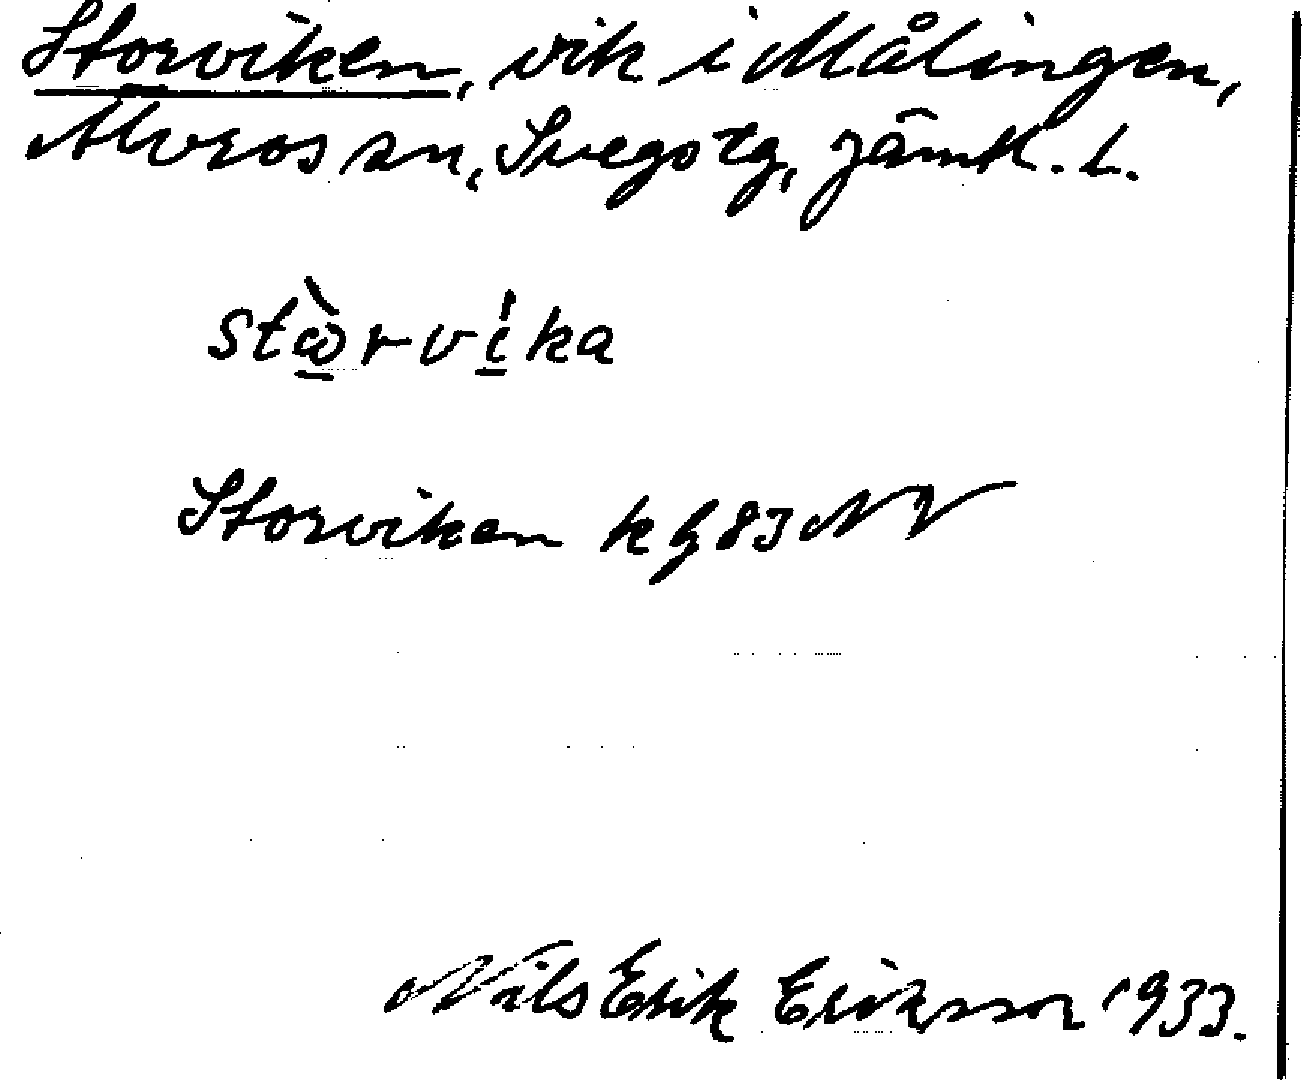 Storviken, vik i Målingen,
Älvros sn, Svegs tg, Jämtl. l.
stὼ̲rví̲ka
Storviken kg 83 NV
Nils Erik Eriksson 1933.